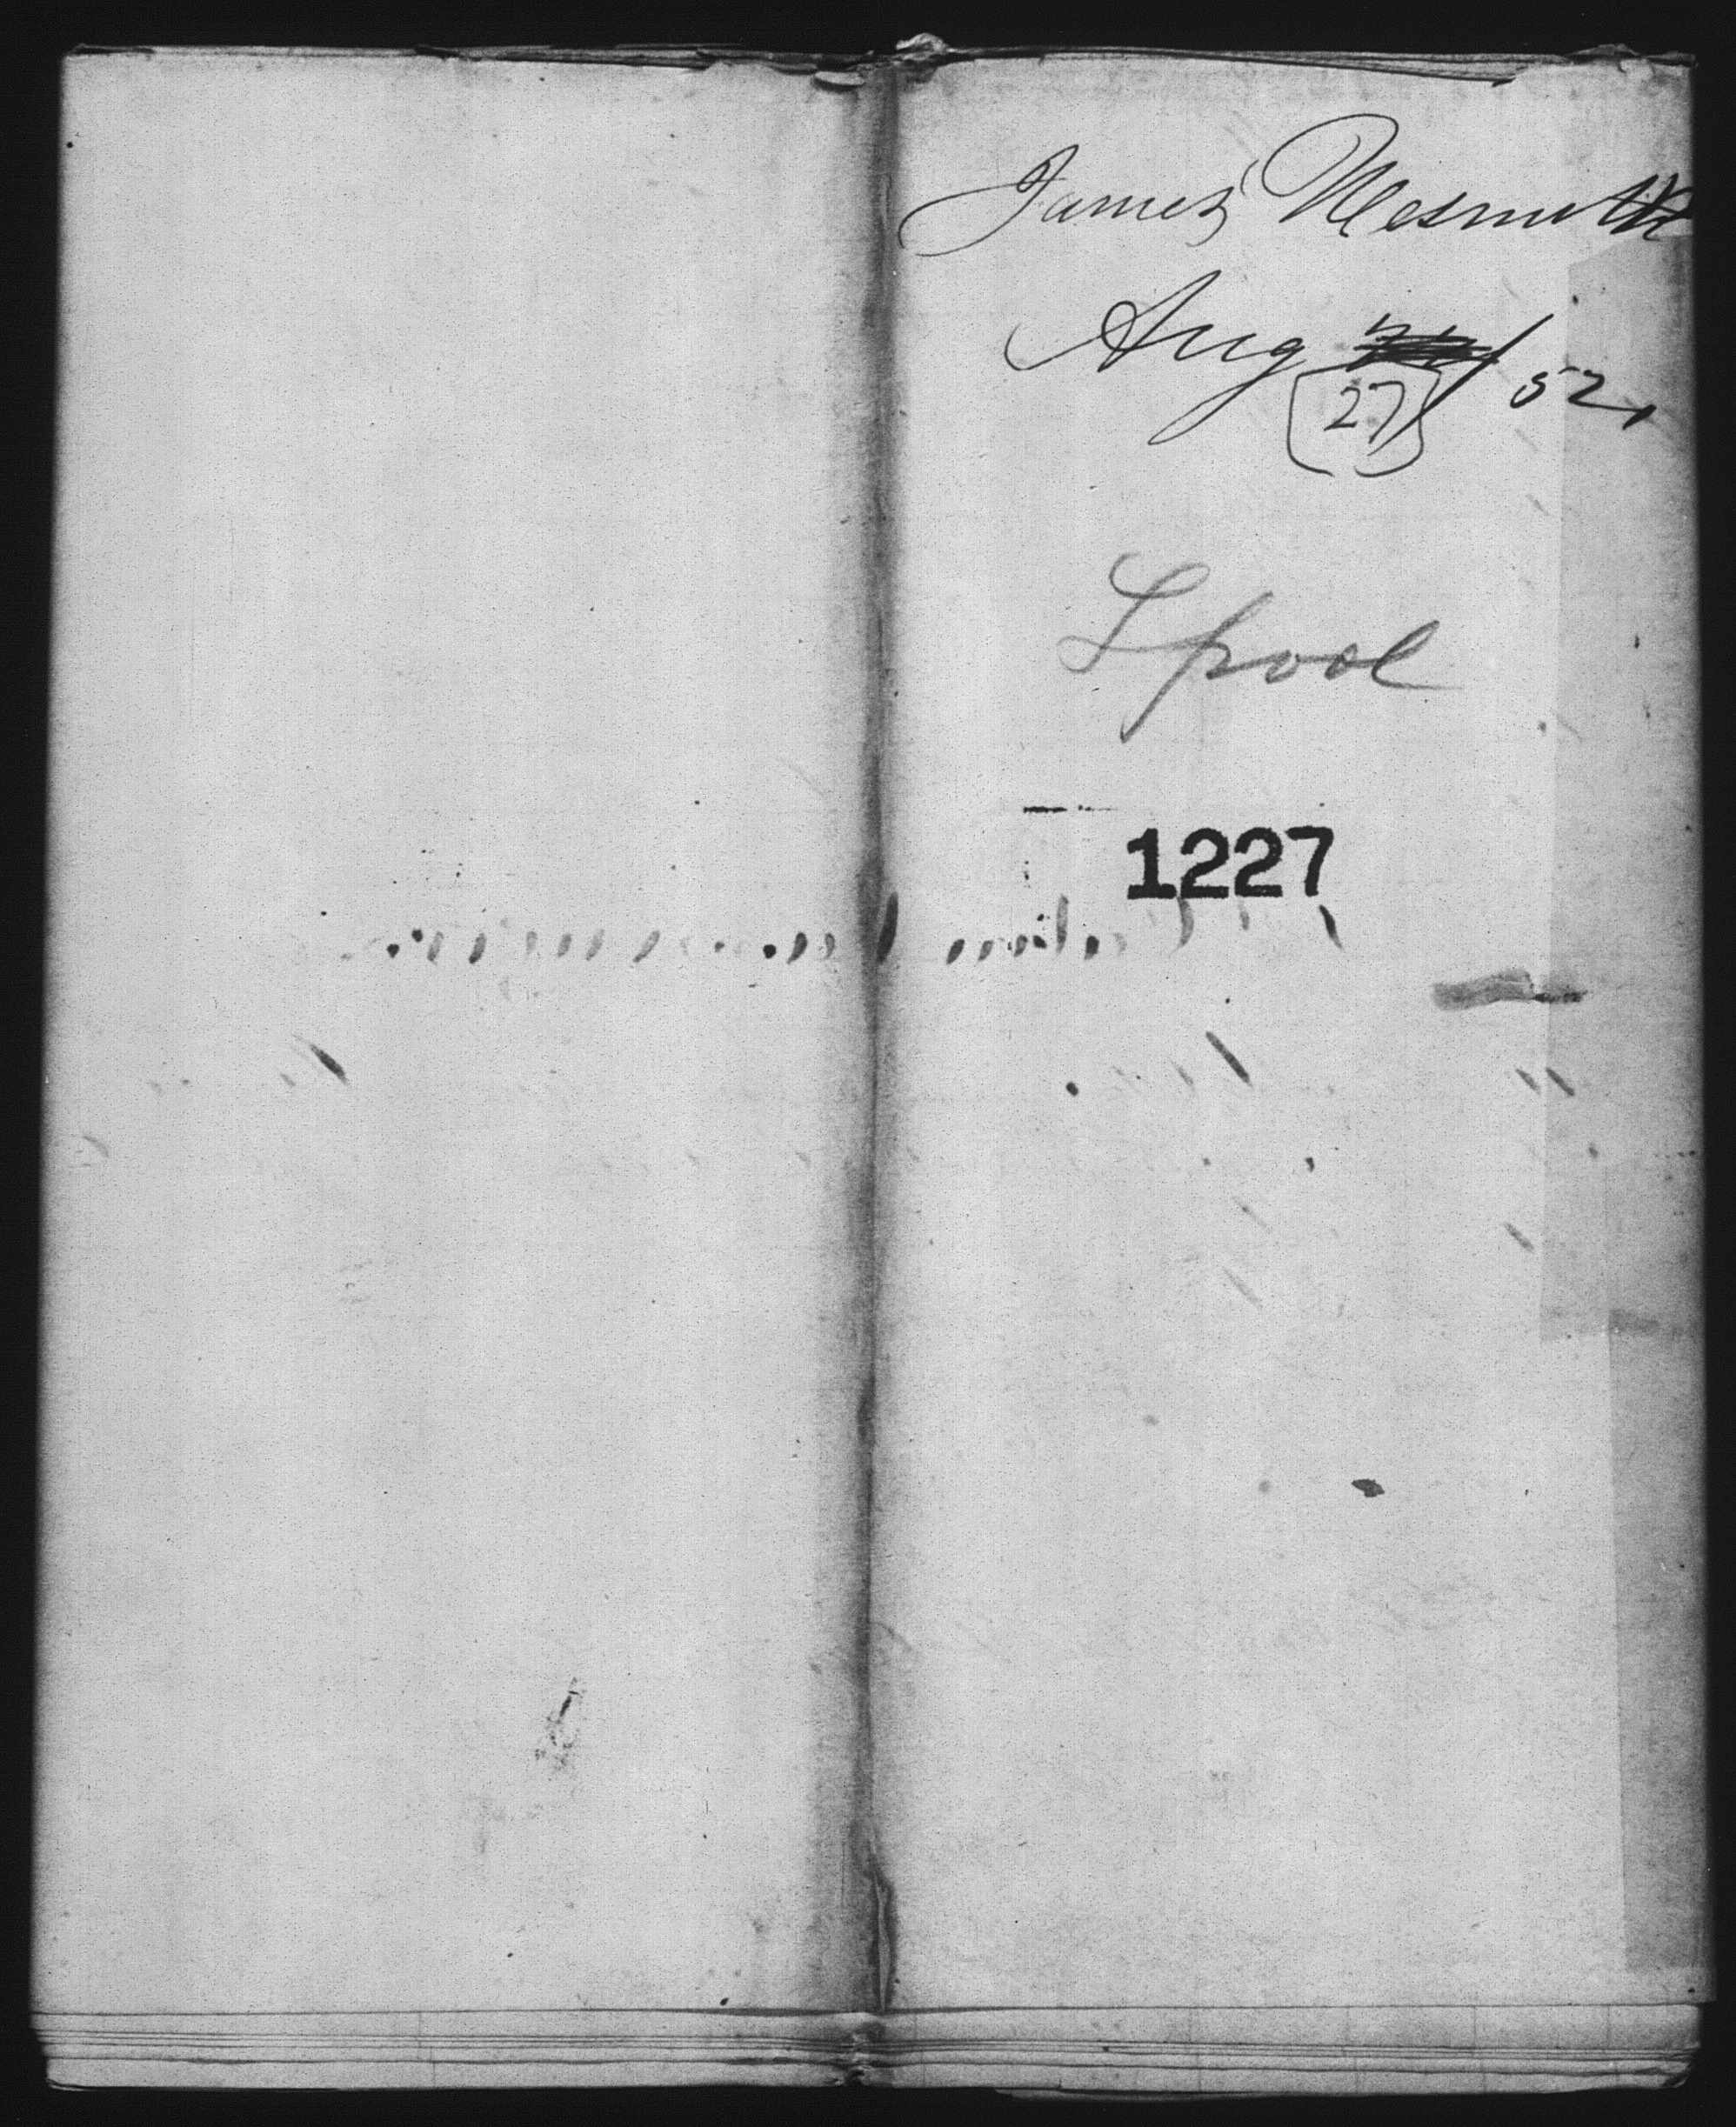 James Nesmith
Aug 27/52.
Lpool
1227